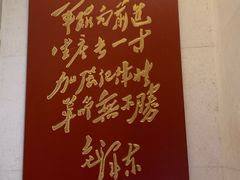 军队向前进
生产长一寸
加强纪律性
革命无不胜
毛泽东